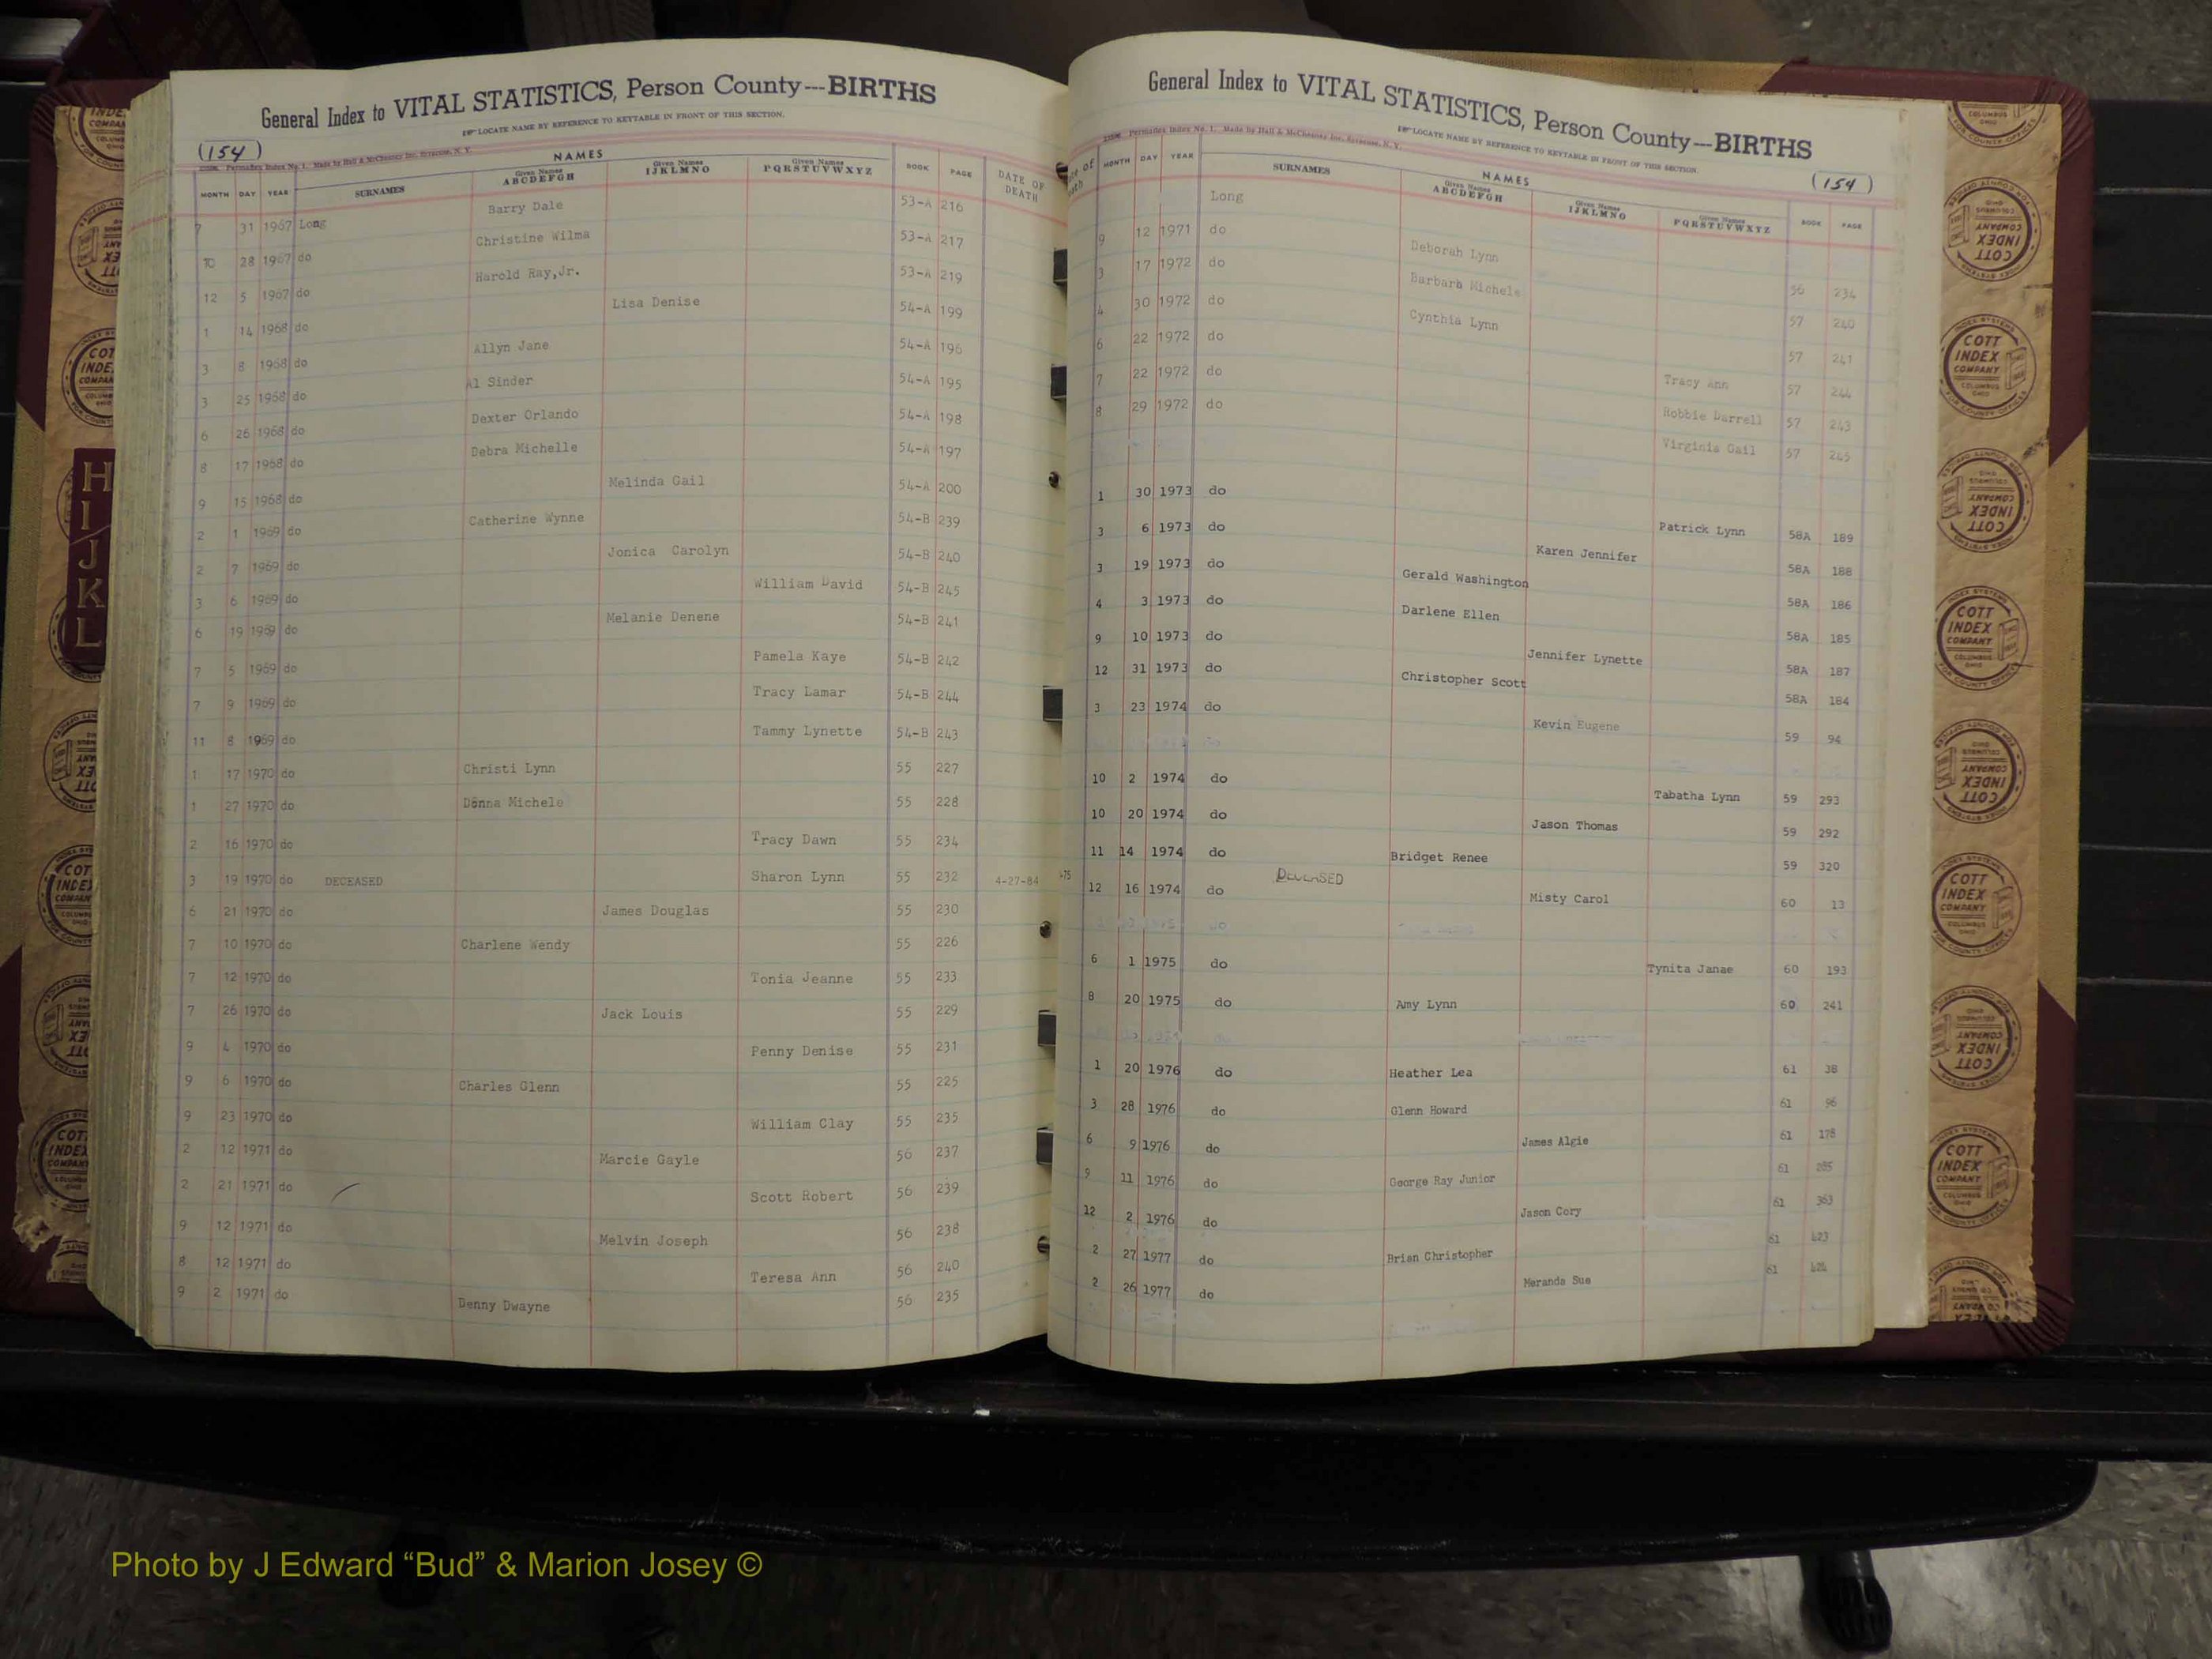 General Index to VITAL STATISTICS, Person County---BIRTHS
LOCATE NAME BY REFERENCE TO KEYTABLE IN FRONT OF THIS SECTION.
(154)
Permaflex Index No. 1. Made by Hall & McChesney Inc. Syracuse, N. Y.
NAMES
MONTH DAY YEAR SURNAMES Given Names ABCDEFGH Given Names IJKLMNO Given Names PQRSTUVWXYZ BOOK PAGE DATE OF DEATH
7 31 1967 Long Barry Dale 53-A 216
10 28 1967 do Christine Wilma 53-A 217
12 5 1967 do Harold Ray,Jr. 53-A 219
1 14 1968 do Lisa Denise 54-A 199
3 8 1968 do Allyn Jane 54-A 196
3 25 1968 do Al Sinder 54-A 195
6 26 1968 do Dexter Orlando 54-A 198
8 17 1968 do Debra Michelle 54-A 197
9 15 1968 do Melinda Gail 54-A 200
2 1 1969 do Catherine Wynne 54-B 239
2 7 1969 do Jonica Carolyn 54-B 240
3 6 1969 do William David 54-B 245
6 19 1969 do Melanie Denene 54-B 241
7 5 1969 do Pamela Kaye 54-B 242
7 9 1969 do Tracy Lamar 54-B 244
11 8 1969 do Tammy Lynette 54-B 243
1 17 1970 do Christi Lynn 55 227
1 27 1970 do Donna Michele 55 228
2 16 1970 do Tracy Dawn 55 234
3 19 1970 do DECEASED Sharon Lynn 55 232 4-27-84
6 21 1970 do James Douglas 55 230
7 10 1970 do Charlene Wendy 55 226
7 12 1970 do Tonia Jeanne 55 233
7 26 1970 do Jack Louis 55 229
9 4 1970 do Penny Denise 55 231
9 6 1970 do Charles Glenn 55 225
9 23 1970 do William Clay 55 235
2 12 1971 do Marcie Gayle 56 237
2 21 1971 do Scott Robert 56 239
9 12 1971 do Melvin Joseph 56 238
8 12 1971 do Teresa Ann 56 240
9 2 1971 do Denny Dwayne 56 235
General Index to VITAL STATISTICS, Person County---BIRTHS
LOCATE NAME BY REFERENCE TO KEYTABLE IN FRONT OF THIS SECTION.
(154)
Permaflex Index No. 1. Made by Hall & McChesney Inc. Syracuse, N. Y.
NAMES
MONTH DAY YEAR SURNAMES Given Names ABCDEFGH Given Names IJKLMNO Given Names PQRSTUVWXYZ BOOK PAGE
Long
9 12 1971 do Deborah Lynn 56 234
3 17 1972 do Barbara Michele 57 240
4 30 1972 do Cynthia Lynn 57 241
6 22 1972 do Tracy Ann 57 244
7 22 1972 do Robbie Darrell 57 243
8 29 1972 do Virginia Gail 57 245
1 30 1973 do Patrick Lynn 58A 189
3 6 1973 do Karen Jennifer 58A 188
3 19 1973 do Gerald Washington 58A 186
4 3 1973 do Darlene Ellen 58A 185
9 10 1973 do Jennifer Lynette 58A 187
12 31 1973 do Christopher Scott 58A 184
3 23 1974 do Kevin Eugene 59 94
10 2 1974 do Tabatha Lynn 59 293
10 20 1974 do Jason Thomas 59 292
11 14 1974 do Bridget Renee 59 320
12 16 1974 do DECEASED Misty Carol 60 13
6 1 1975 do Tynita Janae 60 193
8 20 1975 do Amy Lynn 60 241
1 20 1976 do Heather Lea 61 38
3 28 1976 do Glenn Howard 61 96
6 9 1976 do James Algie 61 178
9 11 1976 do George Ray Junior 61 285
12 2 1976 do Jason Cory 61 363
2 27 1977 do Brian Christopher 61 423
2 26 1977 do Meranda Sue 61
H
I
J
K
L
COTT
INDEX
COMPANY
COLUMBUS
OHIO
Photo by J Edward “Bud” & Marion Josey ©